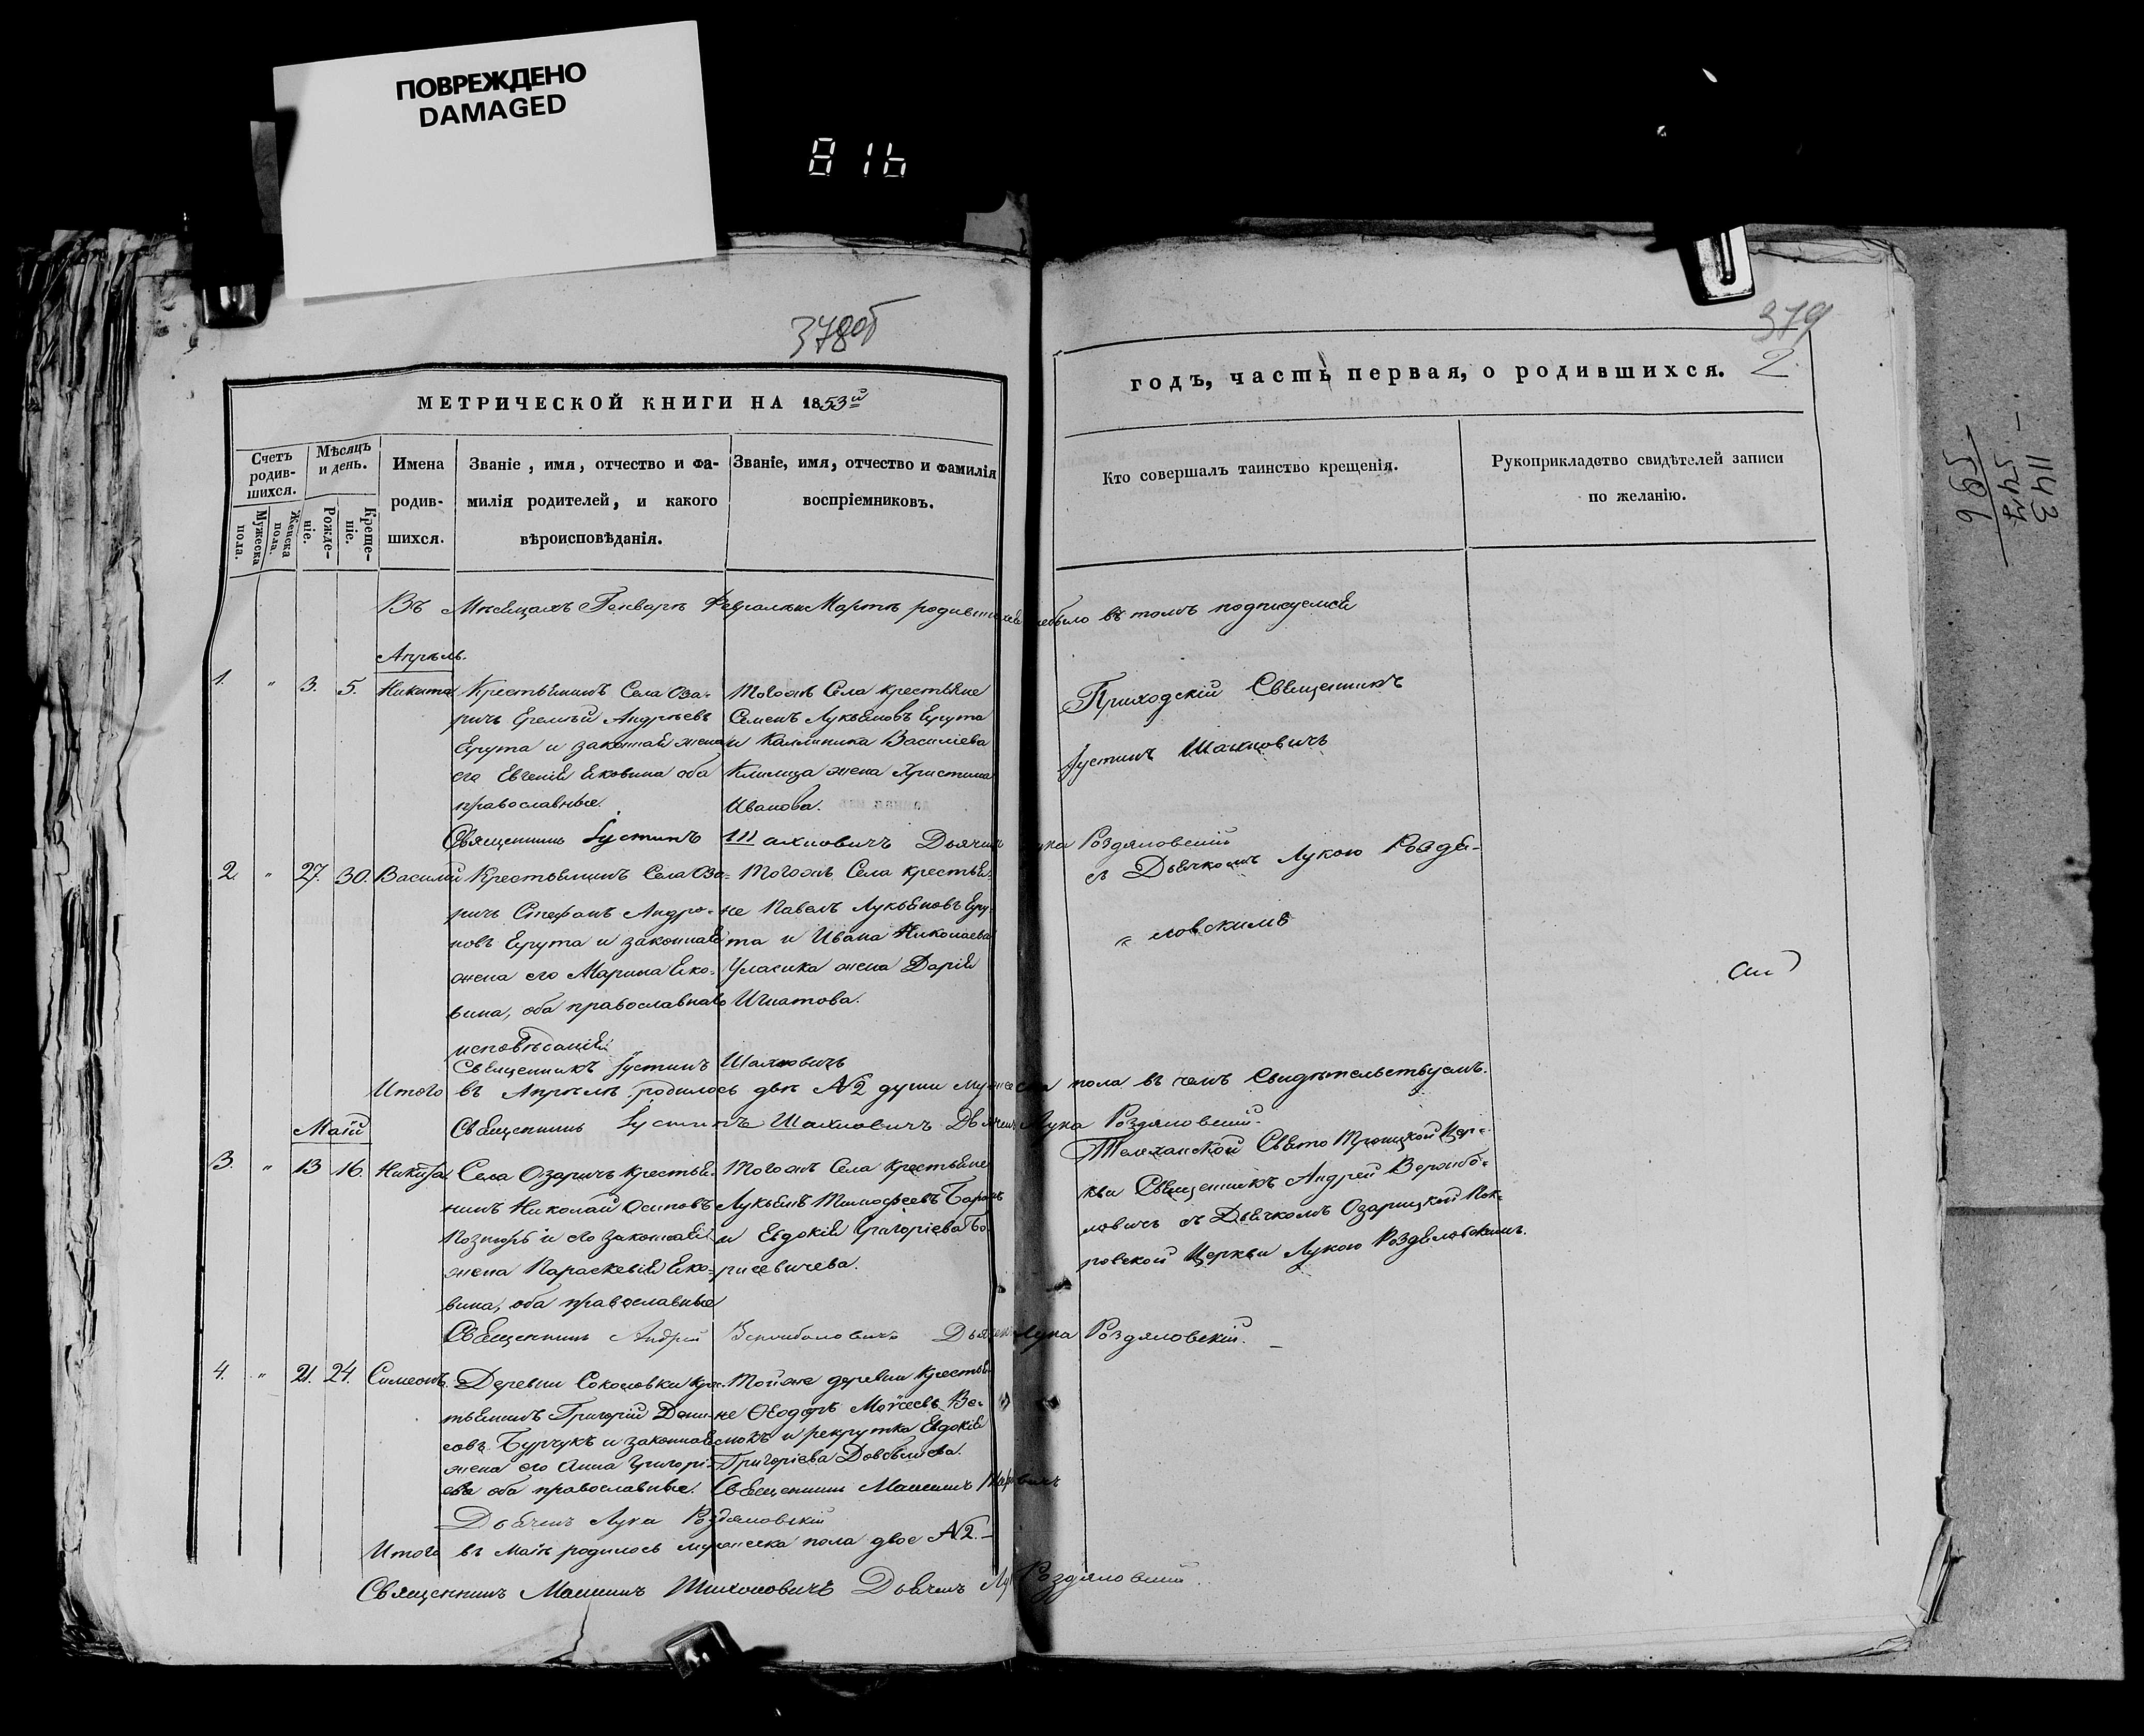 ПОВРЕЖДЕНО
DAMAGED
816
378об
379
2.
МЕТРИЧЕСКОЙ КНИГИ НА 1853й
годъ, часть первая, о родившихся.
Счетъ родив-шихся.
Мѣсяцъ и день.
Имена родив-шихся.
Званіе, имя, отчество и фа-милія родителей, и какого вѣроисповѣданія.
Званіе, имя, отчество и фамилія воспріемниковъ.
Кто совершалъ таинство крещенія.
Рукоприкладство свидѣтелей записи по желанію.
Мужеска пола.
Женска пола.
Рожде-ніе.
Креще-ніе.
Въ Мѣсяцахъ Генварѣ Февралѣ и Мартѣ родившихся небыло въ томъ подписуемся
Апрѣль.
1. " 3. 5. Никита
Крестьянинъ Села Оза-
ричь Еремѣй Андреевъ
Ярута и законная жена
его Евгенія Яковина оба
православные.
Тогожъ Села крестьяне
Семенъ Лукьяновъ Ярута
и Калиника Василіева
Климца жена Христина
Иванова.
Приходскій Священникъ
Іустинъ Шахновичъ
Священникъ Іустинъ Шахновичъ Дьячекъ Лука Роздяловскій
2. " 27. 30. Василій
Крестьянинъ Села Оза-
ричь Стефанъ Андро-
новъ Ярута и законная
жена его Марина Яко-
вина, оба православнаго
исповѣданія.
Тогожъ Села крестья-
не Павелъ Лукьяновъ Яру-
та и Ивана Николаева
Уласика жена Дарія
Игнатова.
съ Дьячкомъ Лукою Роздя-
" ловскимъ
Священникъ Іустинъ Шахновичъ
Итого въ Апрѣлѣ родилось двѣ N2 души мужеска пола въ чемъ Свидѣтельствуемъ.
Священникъ Іустинъ Шахновичъ Дьячекъ Лука Роздяловскій.
Маій
3. " 13 16. Никита
Села Озаричь крестья-
нинъ Николай Осиповъ
и его законная
жена Параскевія Яко-
вина, оба православные
Тогожъ Села крестьяне
Лукьянъ Тимофеевъ
и Евдокія Григоріева Бо-
рисевичева.
Телеханской Свято Троицкой Цер-
кви Священникъ Андрей Вержбо-
ловичъ съ Дьячкомъ Озарицкой Пок-
ровской Церкви Лукою Роздяловскимъ.
Священникъ Андрей Вержболовичъ Дьячекъ Лука Роздяловскій.
4. " 21. 24. Симеонъ.
Деревни Соколовки крес-
тьянинъ Григорій Дени-
совъ Бурчукъ и законная
жена его Анна Григорі-
ева оба православные.
Тойже деревни крестья-
не Ѳеодоръ Моѵсеевъ Ве-
и рекрутка Евдокія
Григоріева
Священникъ
Дьячекъ Лука Роздяловскій
Итого въ Маіѣ родилось мужеска пола двое N2.
Священникъ Дьячекъ Лука Роздяловскій.
1143
547
596